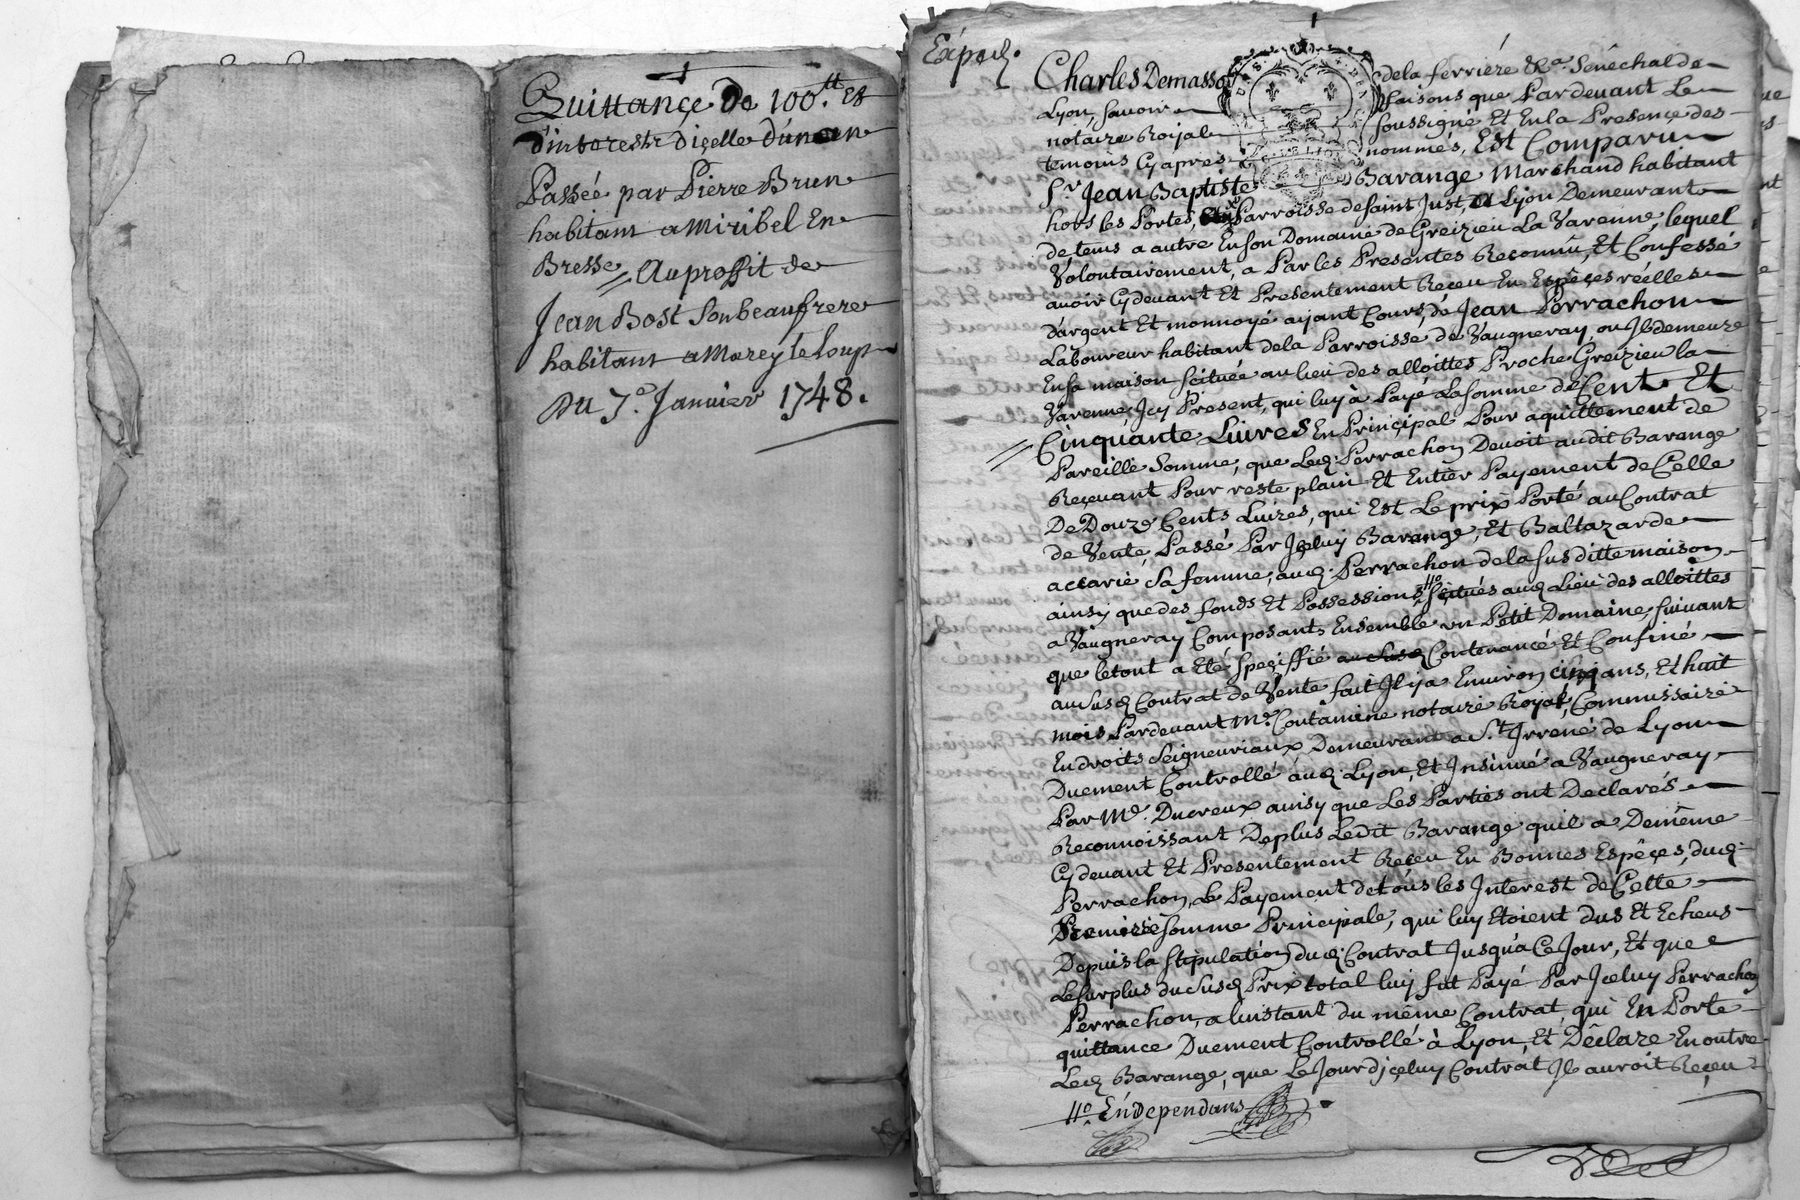 Quittançe De 100.tt Et
d'interests diçelle d'un an
Passée par Pierre Brun
habitant a Miribel En
Bresse // Au proffit de
Jean Bost Son beaufrere
habitant a Marcy le loup
Du 7.e Januier 1748.
Expéd.
Charles Demasso dela ferriére &a. Sénéchal de
Lyon, sauoir faisons que Pardeuant Le
notaire Roijal soussigné Et En la Presençe des
temoins Cyaprés nommés, Est Comparu
S.r Jean Baptiste Barange Marchand habitant
hors les Portes, Parroisse de saint Just, a Lyon Demeurant
de tems a autre En son Domaine de Greizieu La Varenne, lequel
Volontairement, a Par les Presentes Reconnû, Et Confessé
auoir Cy deuant Et Presentement Reçeu En Espêçes réelles
d'argent Et monnoyé aijant Cours, de Jean Perrachon
Laboureur habitant dela Parroisse de Vaugneray ou Jl demeure
En sa maison scituée au lieu des alloittes Proche Greizieu la
Varenne Jcy Present, qui luy à Payé La somme de Cent Et
// Cinquante Liures En Prinçipal Pour aquittement de
Pareille Somme, que Led. Perrachon Deuoit audit Barange
Reçeuant Pour reste plain Et Entier Payement de Celle
De Douze Cents Liures, qui Est Le prix Porté au Contrat
de Vente Passé Par Jçeluy Barange, Et Baltazarde
accarié, sa femme, aud. Perrachon dela susditte maison
ainsy que des fonds Et Possessions #o sçitués aud. Lieu des alloittes
a Vaugneray Composants Ensemble un Petit Domaine, suiuant
que le tout a Eté speçiffié au Susd. Contenancé Et Confiné
au Susd. Contrat de Vente fait Jl ij a Enuiron cinq ans, Et huit
mois Pardeuant M.e Contamine notaire Royal, Commissaire
En droits Seigneuriaux Demeurant a S.t Irrené de Lyon
Duement Controllé aud. Lyon, Et Jnsinué a Vaugneray
Par M.e Ducreux ainsy que Les Parties ont Declarés
Reconnoissant Deplus Ledit Barange quil a Demême
Cy deuant Et Presentement Reçeu En Bonnes Espêçes, dud.
Perrachon, Le Payement de tous les Jnterest de Cette
Premiere somme Prinçipale, qui luy Etoient dus Et Echeus
Depuis la stipulation dud. Contrat Jusqu'a Ce Jour, Et que
Le surplus du Susd. Prix total luy fut Payé Par Jçeluy Perrachon
Perrachon, a linstant du même Contrat, qui En Porte
quittance Duement Controllé à Lyon, Et Déclare En outre
Led. Barange, que Le Jour d'jçeluy Contrat Jl auroit Reçeu
#o En dependans